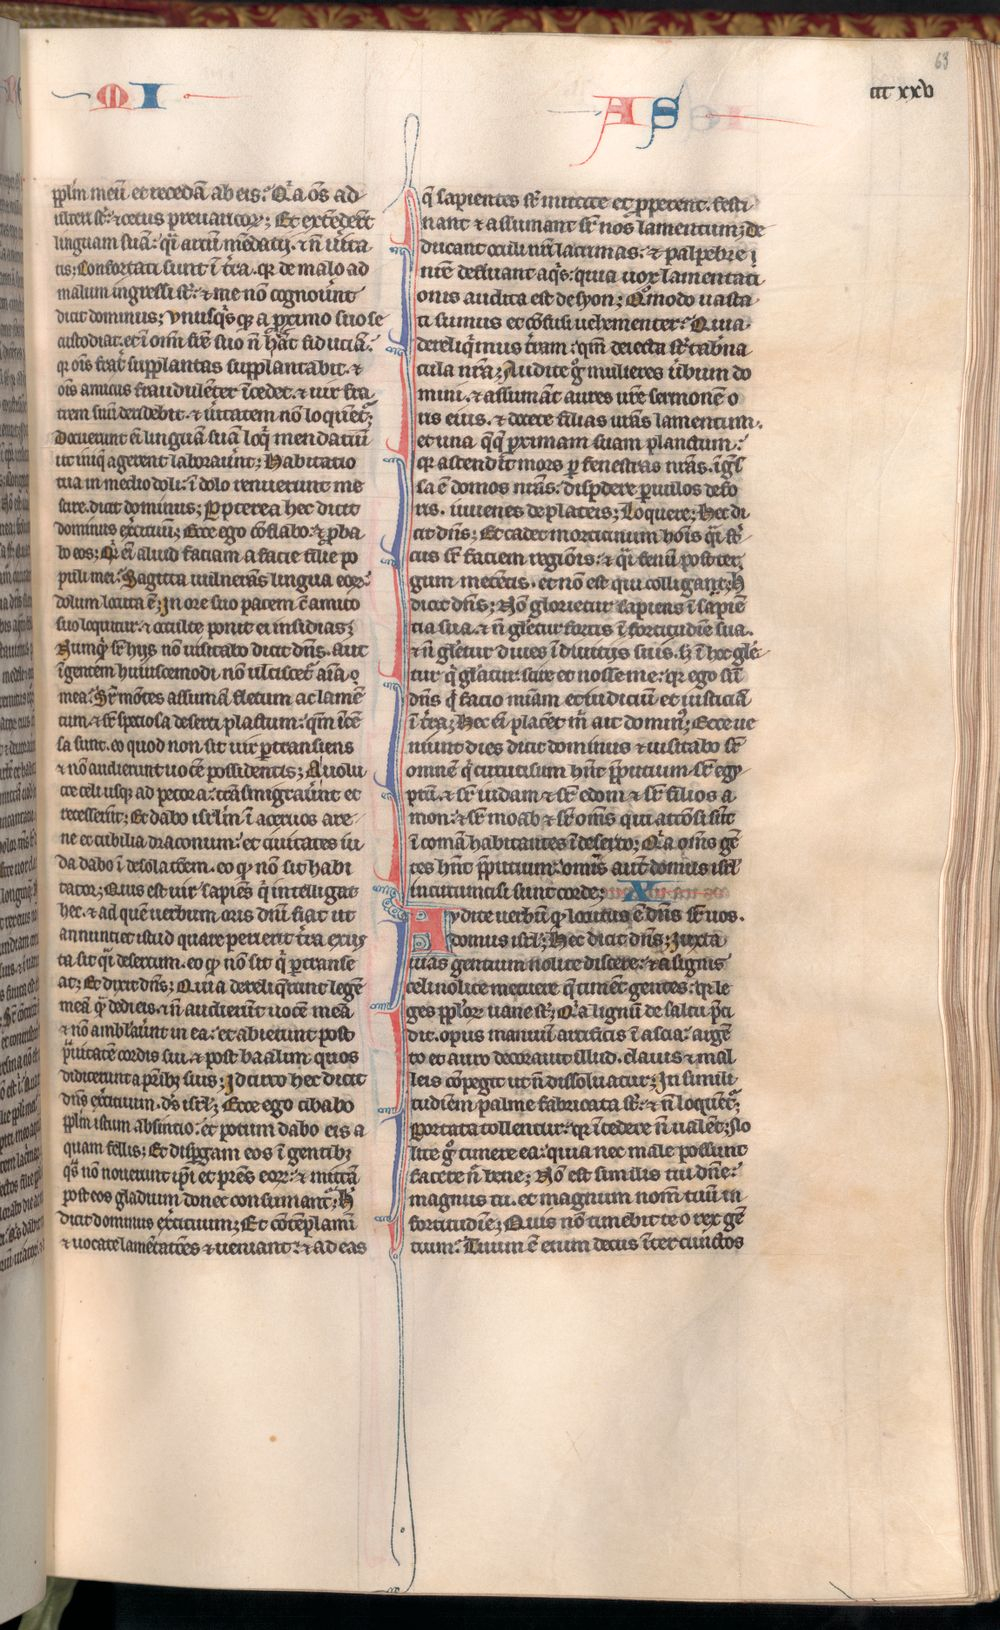 MI AS
68
CCC XXV
pplm̄ meū et recedā ab eis. Qͥa om̄s ad
ulteri st̄. & cetus preuaricatoꝝ; Et extēderūt
linguam suā. qͣi arcū mēdacij. & n̄ uͥita
tis; Confortati sunt ī tͬra. qꝛ de malo ad
malum ingressi st̄. & me nō cognouͬnt
dicit dominus; Vnusqͥsqꝫ a ꝓximo suo se
custodiat. et ī om̄i fr̄e suo n̄ hāt fiduciā.
qꝛ om̄s frat̄ supplantās supplantabit. &
om̄s amicus fraudulēter īcedet. & uir fra
trem suū deridebit. & uͥitatem nō loquet᷑;
Docuerunt em̄ linguā suā loqͥ mendaciū
ut iniq̄ agerent laborauͬnt; Habitatio
tua in medio doli. ī dolo rennuerunt me
scire. dicit dominus; Ꝓpterea hec dicit
dominus exͬcituū; Ecce ego cōflabo. & ꝓba
bo eos; Qͥd em̄ aliud faciam a facie filie po
puli mei. Sagitta uulnerās lingua eoꝝ.
dolum locuta ē; In ore suo pacem cū amico
suo loquitur. & occulte ponit ei insidias;
Numqͥd sr̄ hijs nō uisitabo dicit dn̄s. aut
ī gentem huiuscemodi nō ulciscet᷑ aīa
mea. Sr̄ mōtes assumā fletum ac lamē
tum. & sr̄ speciosa deserti planctum. qm̄ īcē
sa sunt. eo quod non sit uir ꝑtransiens
& nō audierunt uocē possidentis; A uolu
cre celi usqꝫ ad pecora. trāsmigrauͬnt et
recesserūt; Et dabo ierl̄m ī aceruos are
ne et cubilia draconum. et ciuitates iu
da dabo ī desolatōem. eo qꝫ nō sit habi
tator; Quis est uir sapiēs qͥ intelligat
hec. & ad quē uerbum oris dn̄i fiat ut
annunciet istud quare perierit tͬra exus
ta sit qͣi desertum. eo qꝫ nō sit qͥ ꝑtranse
at; Et dixit dn̄s; Quia dereliqͬunt legē
meā qͣ dedi eis. & n̄ audierūt uocē meā
& nō ambl̄auͬnt in ea. et abierunt post
pͣuitatē cordis sui. & post baalim quos
didicerunt a pr̄ibꝫ suis; Idcirco hec dicit
dn̄s exͬcituum. ds̄ isrl̄; Ecce ego cibabo
pplm̄ istum absintio. et potum dabo eis a
quam fellis; Et dispgam eos ī gentibꝫ
qͣs nō nouerunt ip̄i et pr̄es eoꝝ. & mittā
post eos gladium donec consumant᷑; H̄
dicit dominus exͬcituum; Et cōtēplamī
& uocate lamētatͥces & ueniant. & ad eas
q̄ sapientes st̄ mittite et ꝓperent. festi
nant & assumant sr̄ nos lamentum; De
ducant oculi nr̄i lacrimas. & palpebre
nr̄e defluant aqͥs. quia uox lamentati
onis audita est de syon; Qͦmodo uasta
ti sumus et cōfusi uehementer. Quia
dereliqͥmus tͬram. qm̄ deiecta st̄ tabͬna
cula nr̄a; Audite gͦ mulieres uͬbum do
mini. & assumāt aures ur̄e sermonē o
ris eius. & docete filias ur̄as lamentum.
et una qͣqꝫ ꝓximam suam planctum.
qꝛ ascendit mors ꝑ fenestras nr̄as. īgͬs
sa ē domos nr̄as. disꝑdere paruulos defo
ris. iuuenes de plateis; Loquere; Hec di
cit dn̄s; Et cadet morticinum hoīs qͣi st̄
cus sr̄ faciem regiōis. & qͣi fenū post ter
gum metētis. et nō est qui colligat; H̄
dicit dn̄s; Nō glorietur sapiens ī sapiē
tia sua. & n̄ gl̄etur fortis ī fortitudīe sua.
& n̄ gl̄etur diues ī diuitijs suis. s; ī hoc gl̄e
tur qͥ gl̄atur. scire et nosse me. qꝛ ego sū
dn̄s qͥ facio mīam et iudiciū et iusticiā
ī tͬra; Hec em̄ placēt m̄ ait domin᷒; Ecce ue
niunt dies dicit dominus & uisitabo sr̄
omnē qͥ circūcisum hn̄t p̄putium. sr̄ egy
ptū. & sr̄ iudam & sr̄ edom & sr̄ filios a
mon. & sr̄ moab & sr̄ om̄s qui attōsi sūt
ī comā habitantes ī deserto; Qͥa om̄s gē
tes hn̄t p̄putium. omīs aut̄ domus isrl̄
incircumcisi sunt corde; X
Audite uerbū qꝫ locutus ē dn̄s sr̄ uos.
domus isrl̄; Hec dicit dn̄s; Iuxta
uias gentium nolite discere. & a signis
celi nolite metuere q̄ timēt gentes. qꝛ le
ges pploꝝ uane st̄; Qͥa lignū de saltu p̄ci
dit. opus manuū artificis ī ascia. argē
to et auro decorauit illud. clauis & mal
leis cōpegit ut n̄ dissoluatur; In simili
tudinē palme fabricata st̄. & n̄ loquēt᷑;
Portata tollentur. qꝛ īcedere n̄ ualēt; No
lite gͦ timere ea. quia nec male possunt
facere n̄ bene; Nō est similis tui dn̄e.
magnus tu. et magnum nom̄ tuū in
fortitudīe; Quis nō timebit te o rex gē
tium. Tuum ē enim decus īter cunctos